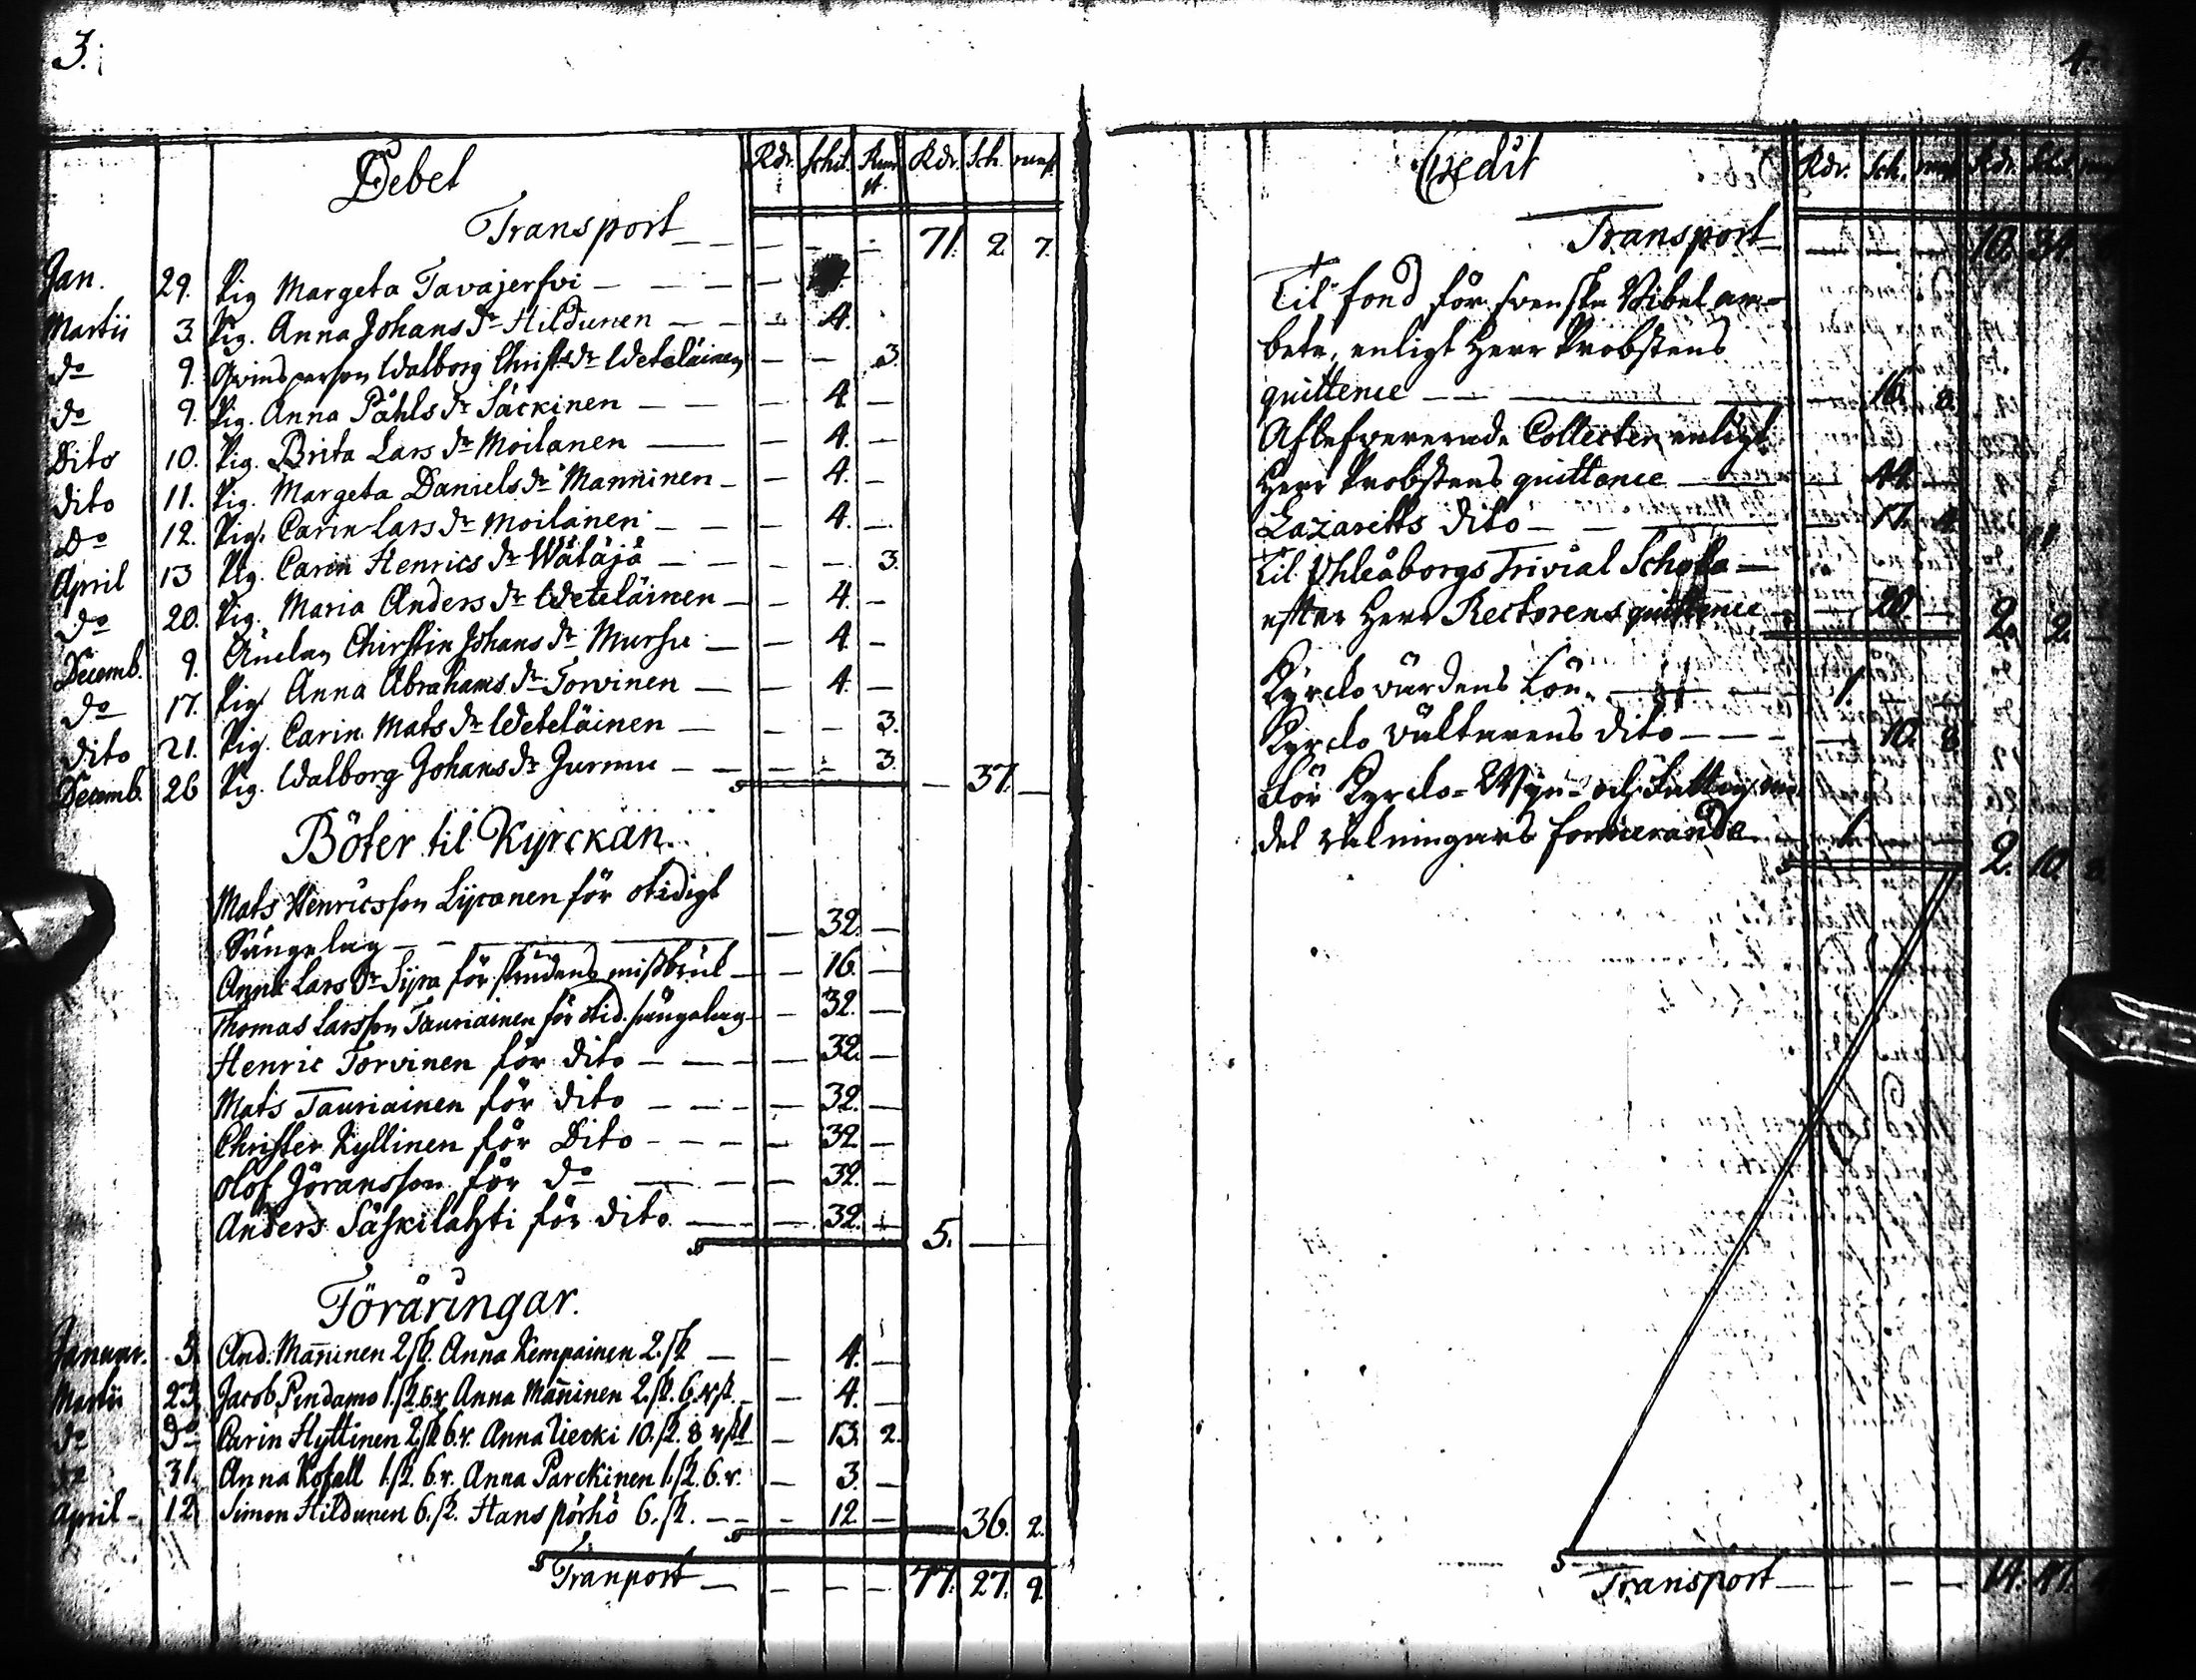 3.
Debet Rdr. Schil. Runst. Rdr. Sch. runst.
Transport — — — — — 71. 2. 7.
Jan. 29. Pig. Margeta Tavajerfvi — — — —
Martii 3. Pig. Anna Johans Dr Hildunen — — — 4.
Do 9. Qvinsperson Walborg Christs Dr Weteläinen — — 3.
Do 9. Pig. Anna Påhls Dr Säckinen — — — 4. —
Dito 10. Pig. Brita Lars Dr Moilanen — — 4. —
dito 11. Pig. Margeta Daniels Dr Manninen — — 4. —
Do 12. Pig. Carin Lars Dr Moilanen — — — 4. —
April 13 Pig. Carin Henrics Dr Wätäjä — — — — 3.
Do 20. Pig. Maria Anders Dr Weteläinen — — 4. —
Decemb. 9. Änckan Chirstin Johans Dr Mursu — — 4. —
Do 17. Pig. Anna Abrahams Dr Torvinen — — 4. —
Dito 21. Pig. Carin Mats Dr Weteläinen — — — 3.
Decemb. 26 Pig. Walborg Johans Dr Jurmu — — — 3. — 37. —
Böter til Kyrckan.
Mats Henricsson Lycanen för otidigt
Sängelag — — — — — 32. —
Anna Lars Dr Sipa för skrudens missbruk — — 16. —
Thomas Larsson Tauriainen för otid. sängelag — — 32. —
Henric Torvinen för dito — — — — 32. —
Mats Tauriainen för dito — — — — 32. —
Christer Kyllinen för Dito — — — — 32. —
Olof Jöransson för Do — — — — 32. —
Anders Säskilahti för dito — — — 32. — 5. — —
Föräringar.
Januar. 5. And. Manninen 2 sk. Anna Kempainen 2. sk — — 4. —
Martii 23. Jacob Pindamo 1. sk 6 r. Anna Manninen 2. sk. 6. rst. — — 4. —
Do Do Carin Hyttinen 2 sk 6. r. Anna Liecki 10. sk. 8 rst — 13. 2.
Do 31. Anna Kofall 1. sk. 6. r. Anna Parckinen 1. sk. 6. r. — 3. —
April — 12. Simon Hildunen 6. sk. Hans Pörhö 6. sk. — — — 12. — — 36. 2.
Tranport — — — — 77. 27. 9.
4.
Credit Rdr. Sch. runst. Rdr. Sch.
Transport — — — 10. 34.
Til fond för svenska Bibel ar-
bete, enligt Herr Probstens
quittence — — — — 16. 8.
Aflefvererade Collecter enligt
Herr Probstens quittance — — 44. —
Lazaretts dito — — — 17. 4.
Til Uhleåborgs Trivial Schola —
efter Herr Rectorens quittence — 20. — 2. 2. —
Kyrckovärdens Lön. — — — 1. —
Kyrcko väktarens dito — — — — 10. 8.
För Kyrcko- Wijn- och Fattig me-
del räkningars formerande — 1. — 2. 10. 8.
Transport — — — — 14. 47.